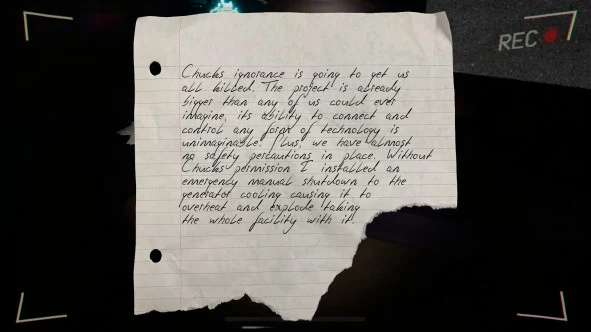 REC
Chucks ignorance is going to get us
all killed. The project is already
bigger than any of us could ever
imagine, its ability to connect and
control any form of technology is
unimaginable. Plus, we have almost
no safety percautions in place. Without
Chucks permission I installed an
emergency manual shutdown to the
generator cooling causing it to
overheat and explode taking
the whole facility with it.